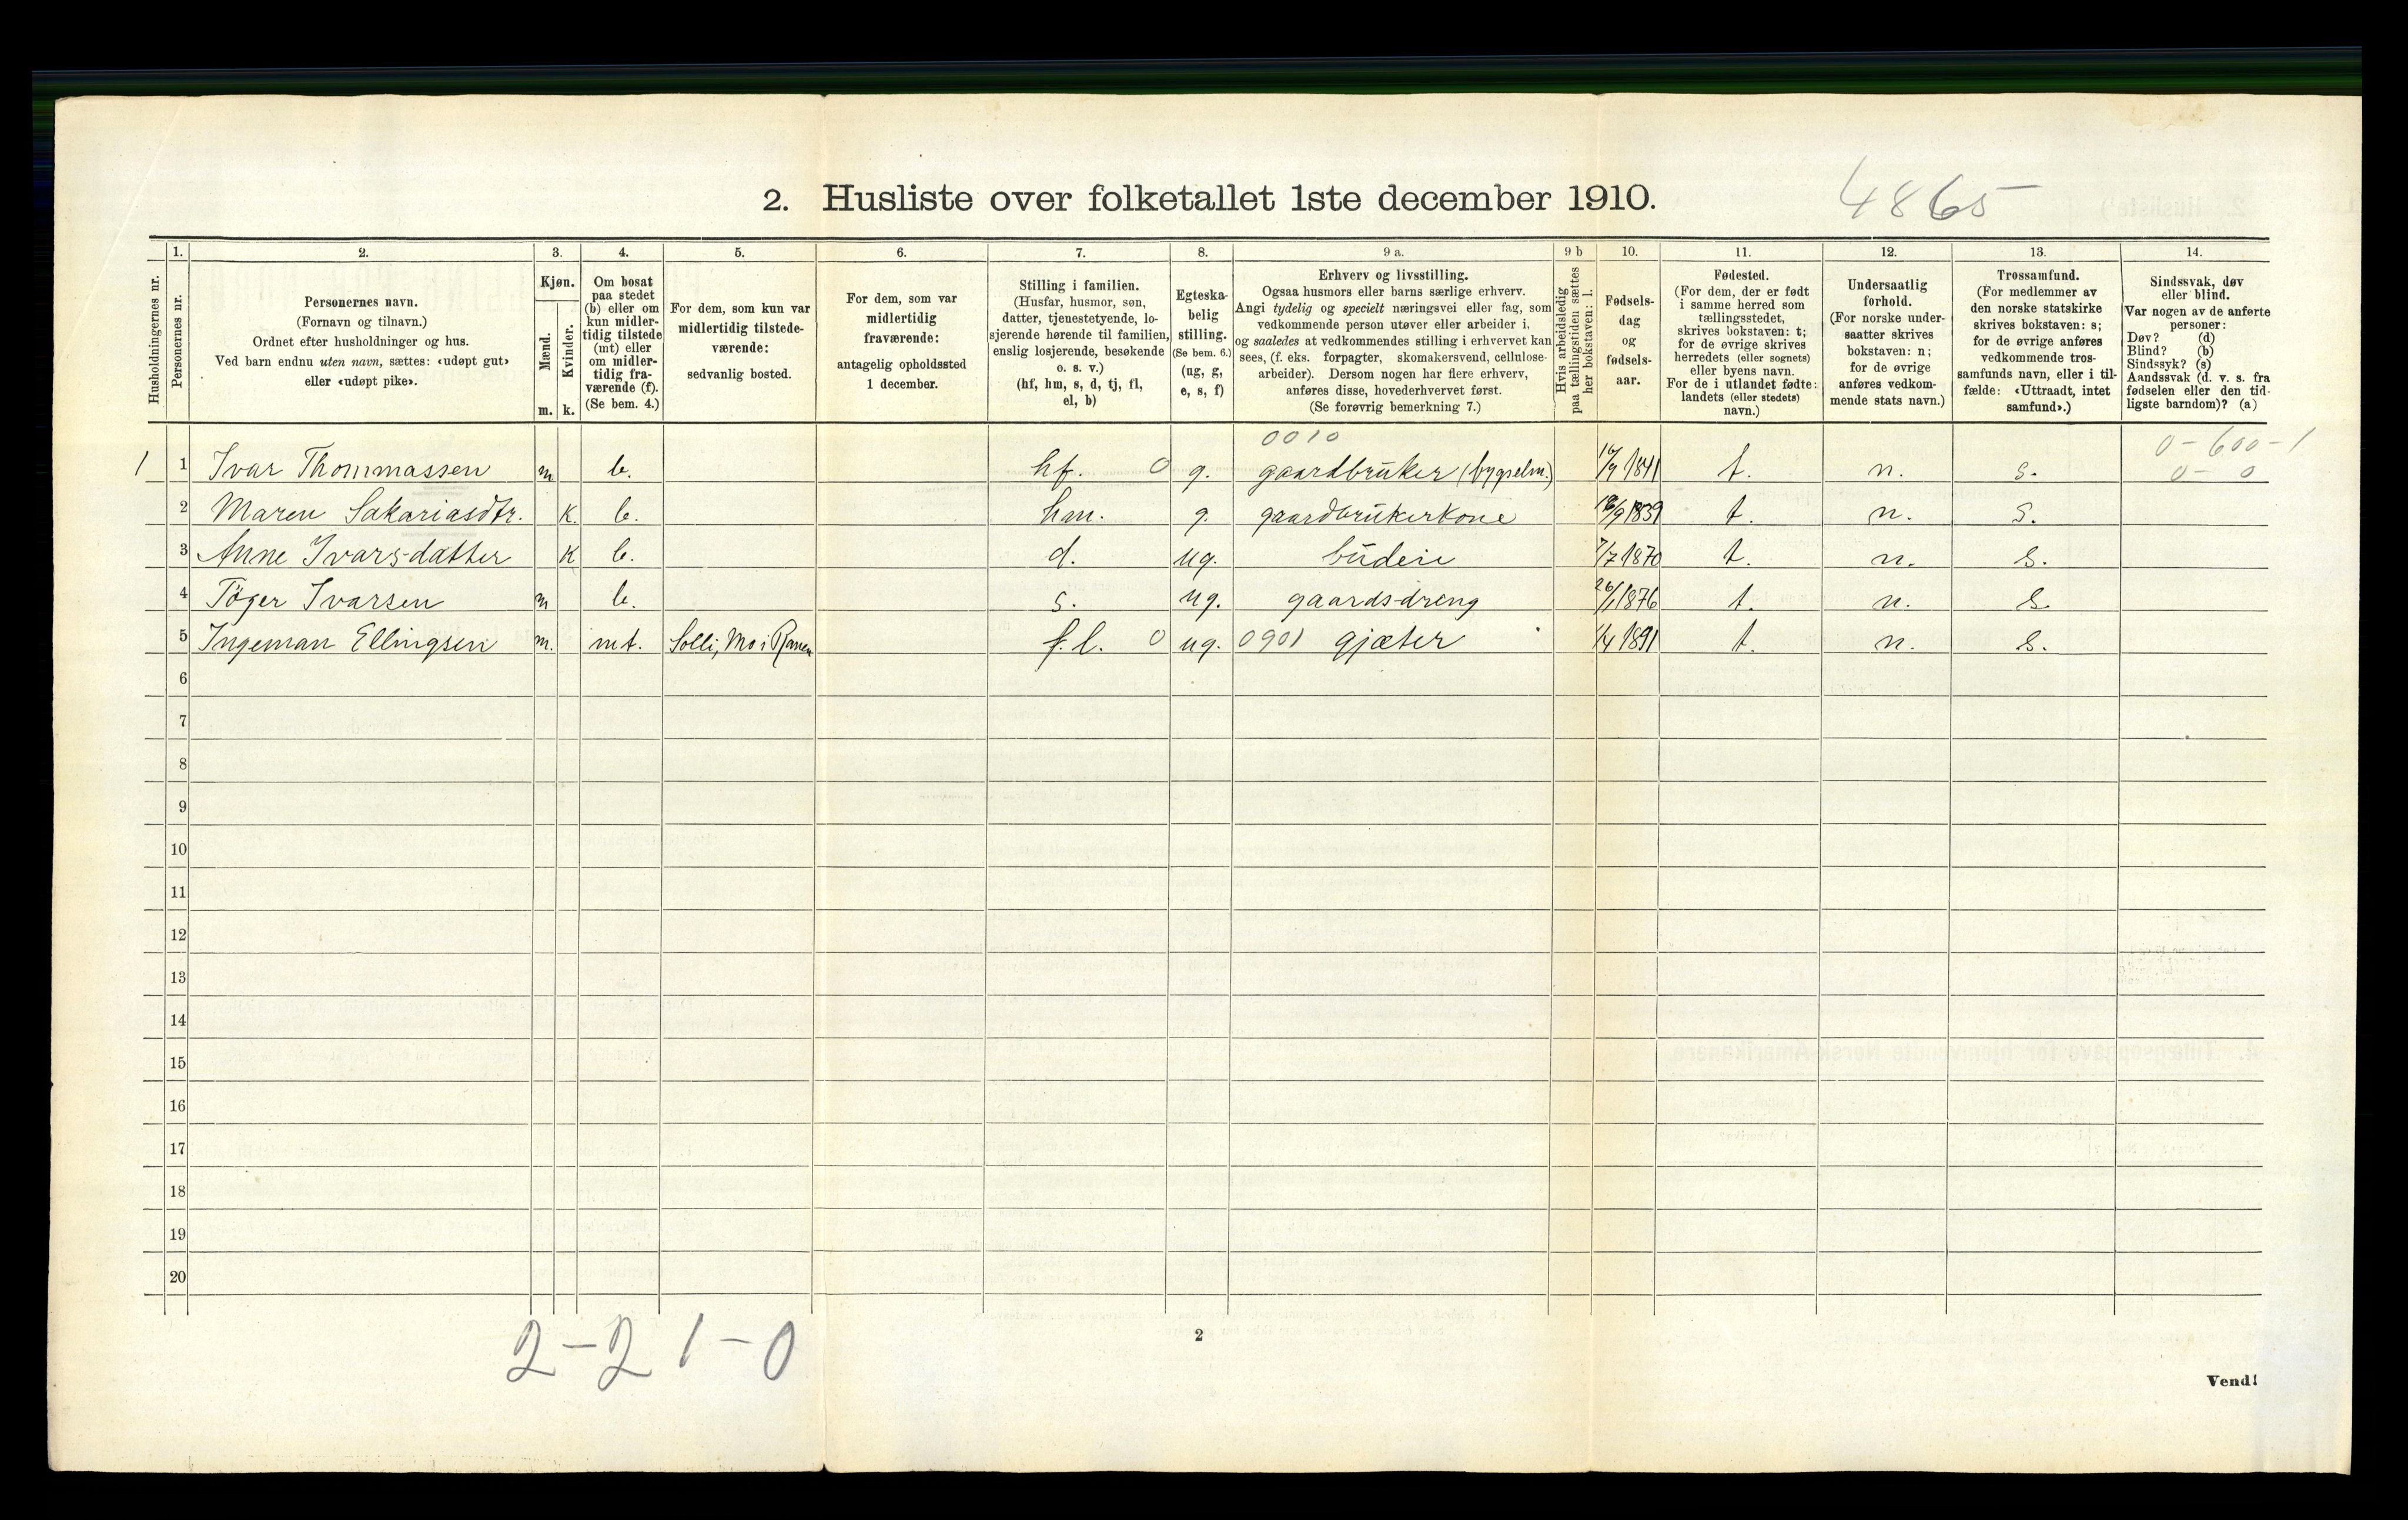 2. Husliste over folketallet 1ste december 1910.
4865
1. 2. 3. 4. 5. 6. 7. 8. 9 a. 9 b 10. 11. 12. 13. 14.
Husholdningernes nr.
Personernes nr.
Personernes navn.
(Fornavn og tilnavn.)
Ordnet efter husholdninger og hus.
Ved barn endnu uten navn, sættes: «udøpt gut»
eller «udøpt pike».
Kjøn.
Mænd.
Kvinder.
m. k.
Om bosat
paa stedet
(b) eller om
kun midler-
tidig tilstede
(mt) eller
om midler-
tidig fra-
værende (f).
(Se bem. 4.)
For dem, som kun var
midlertidig tilstede-
værende:
sedvanlig bosted.
For dem, som var
midlertidig
fraværende:
antagelig opholdssted
1 december.
Stilling i familien.
(Husfar, husmor, søn,
datter, tjenestetyende, lo-
sjerende hørende til familien,
enslig losjerende, besøkende
o. s. v.)
(hf, hm, s, d, tj, fl,
el, b)
Egteska-
belig
stilling.
(Se bem. 6.)
(ug, g,
e, s, f)
Erhverv og livsstilling.
Ogsaa husmors eller barns særlige erhverv.
Angi tydelig og specielt næringsvei eller fag, som
vedkommende person utøver eller arbeider i,
og saaledes at vedkommendes stilling i erhvervet kan
sees, (f. eks. forpagter, skomakersvend, cellulose-
arbeider). Dersom nogen har flere erhverv,
anføres disse, hovederhvervet først.
(Se forøvrig bemerkning 7.)
Hvis arbeidsledig
paa tællingstiden sættes
her bokstaven: l.
Fødsels-
dag
og
fødsels-
aar.
Fødested.
(For dem, der er født
i samme herred som
tællingsstedet,
skrives bokstaven: t;
for de øvrige skrives
herredets (eller sognets)
eller byens navn.
For de i utlandet fødte:
landets (eller stedets)
navn.)
Undersaatlig
forhold.
(For norske under-
saatter skrives
bokstaven: n;
for de øvrige
anføres vedkom-
mende stats navn.)
Trossamfund.
(For medlemmer av
den norske statskirke
skrives bokstaven: s;
for de øvrige anføres
vedkommende tros-
samfunds navn, eller i til-
fælde: «Uttraadt, intet
samfund».)
Sindssvak, døv
eller blind.
Var nogen av de anførte
personer:
Døv? (d)
Blind? (b)
Sindssyk? (s)
Aandssvak (d. v. s. fra
fødselen eller den tid-
ligste barndom)? (a)
0010
0-600-1
1 1 Ivar Thommassen m b. hf. 0 g. gaardbruker (bygselm.) 1841 t. n. s. 0- 0
2 Maren Sakariasdtr. K. b. hm. g. gaardbrukerkone 1839 t. n. s.
3 Anne Ivarsdatter K b. d. ug. budeie 7/7 1870 t. n. s.
4 Töger Ivarsen m b. s. ug. gaardsdreng 26/1 1876 t. n. s.
5 Ingeman Ellingsen m. mt. Solli, Mo i Ranen f.l. 0 ug. 0901 gjæter 1/4 1891 t. n. s.
6
7
8
9
10
11
12
13
14
15
16
17
18
19
20
2-2 1-0
2
Vend!